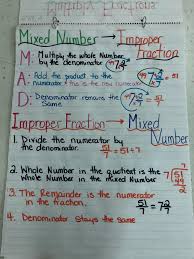 Mixed Number → Improper Fraction
M: Multiply the whole Number
by the denominator
A: Add the product to the
numerator
D: Denominator remains the
Same
Improper Fraction → Mixed Number
1. Divide the numerator by
the denominator. 51/7 = 51÷7
2. Whole Number in the quotient is the
Whole Number in the mixed Number
7
7 51
49
2
3. The Remainder is the numerator
in the fraction. 51/7 = 7 2/7
4. Denominator Stays the Same